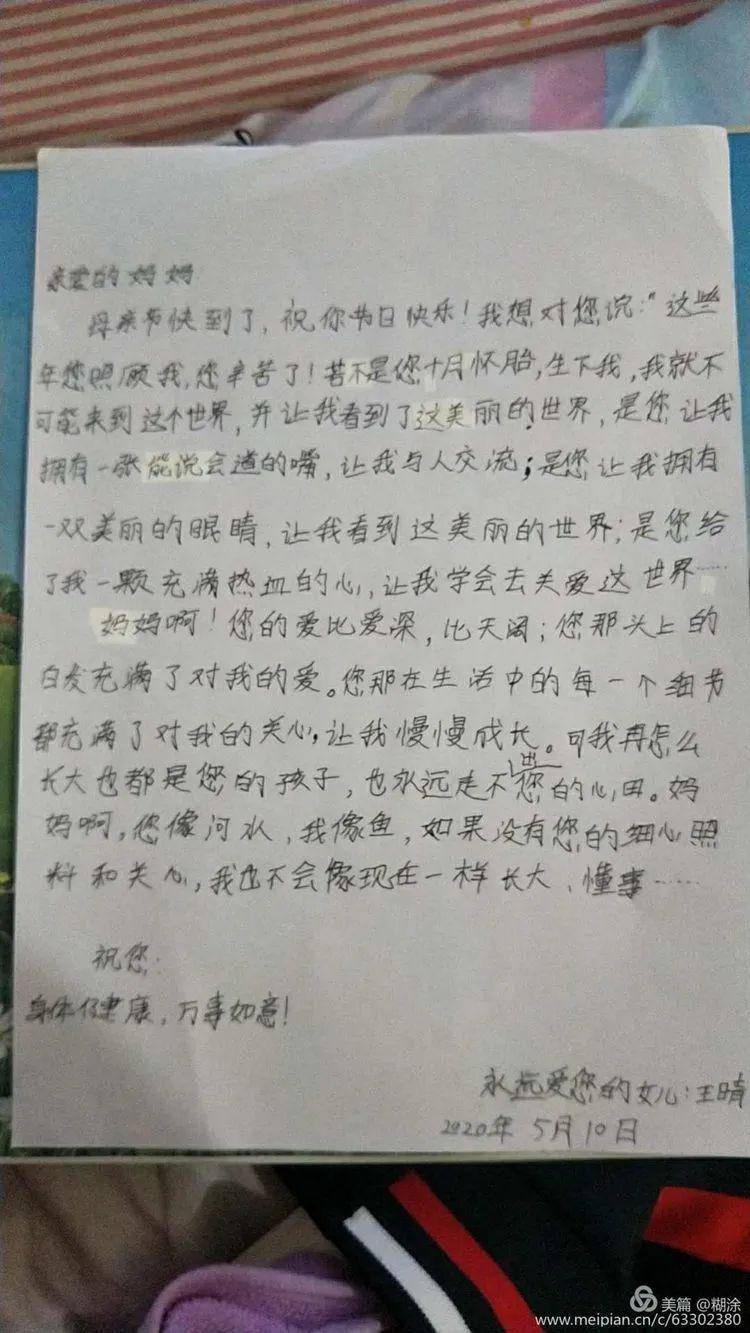 亲爱的妈妈
母亲节快到了，祝你节日快乐！我想对您说："这些
年您照顾我，您辛苦了！若不是您十月怀胎，生下我，我就不
可能来到这个世界，并让我看到了这美丽的世界，是您让我
拥有一张能说会道的嘴，让我与人交流；是您让我拥有
一双美丽的眼睛，让我看到这美丽的世界；是您给
了我一颗充满热血的心，让我学会去关爱这世界……
妈妈啊！您的爱比爱深，比天阔；您那头上的
白发充满了对我的爱。您那在生活中的每一个细节
都充满了对我的关心，让我慢慢成长。可我再怎么
长大也都是您的孩子，也永远走不出您的心田。妈
妈啊，您像河水，我像鱼，如果没有您的细心照
料和关心，我也不会像现在一样长大、懂事……
祝您：
身体健康，万事如意！
永远爱您的女儿：王晴
2020年5月10日
美篇 @糊涂
www.meipian.cn/c/63302380